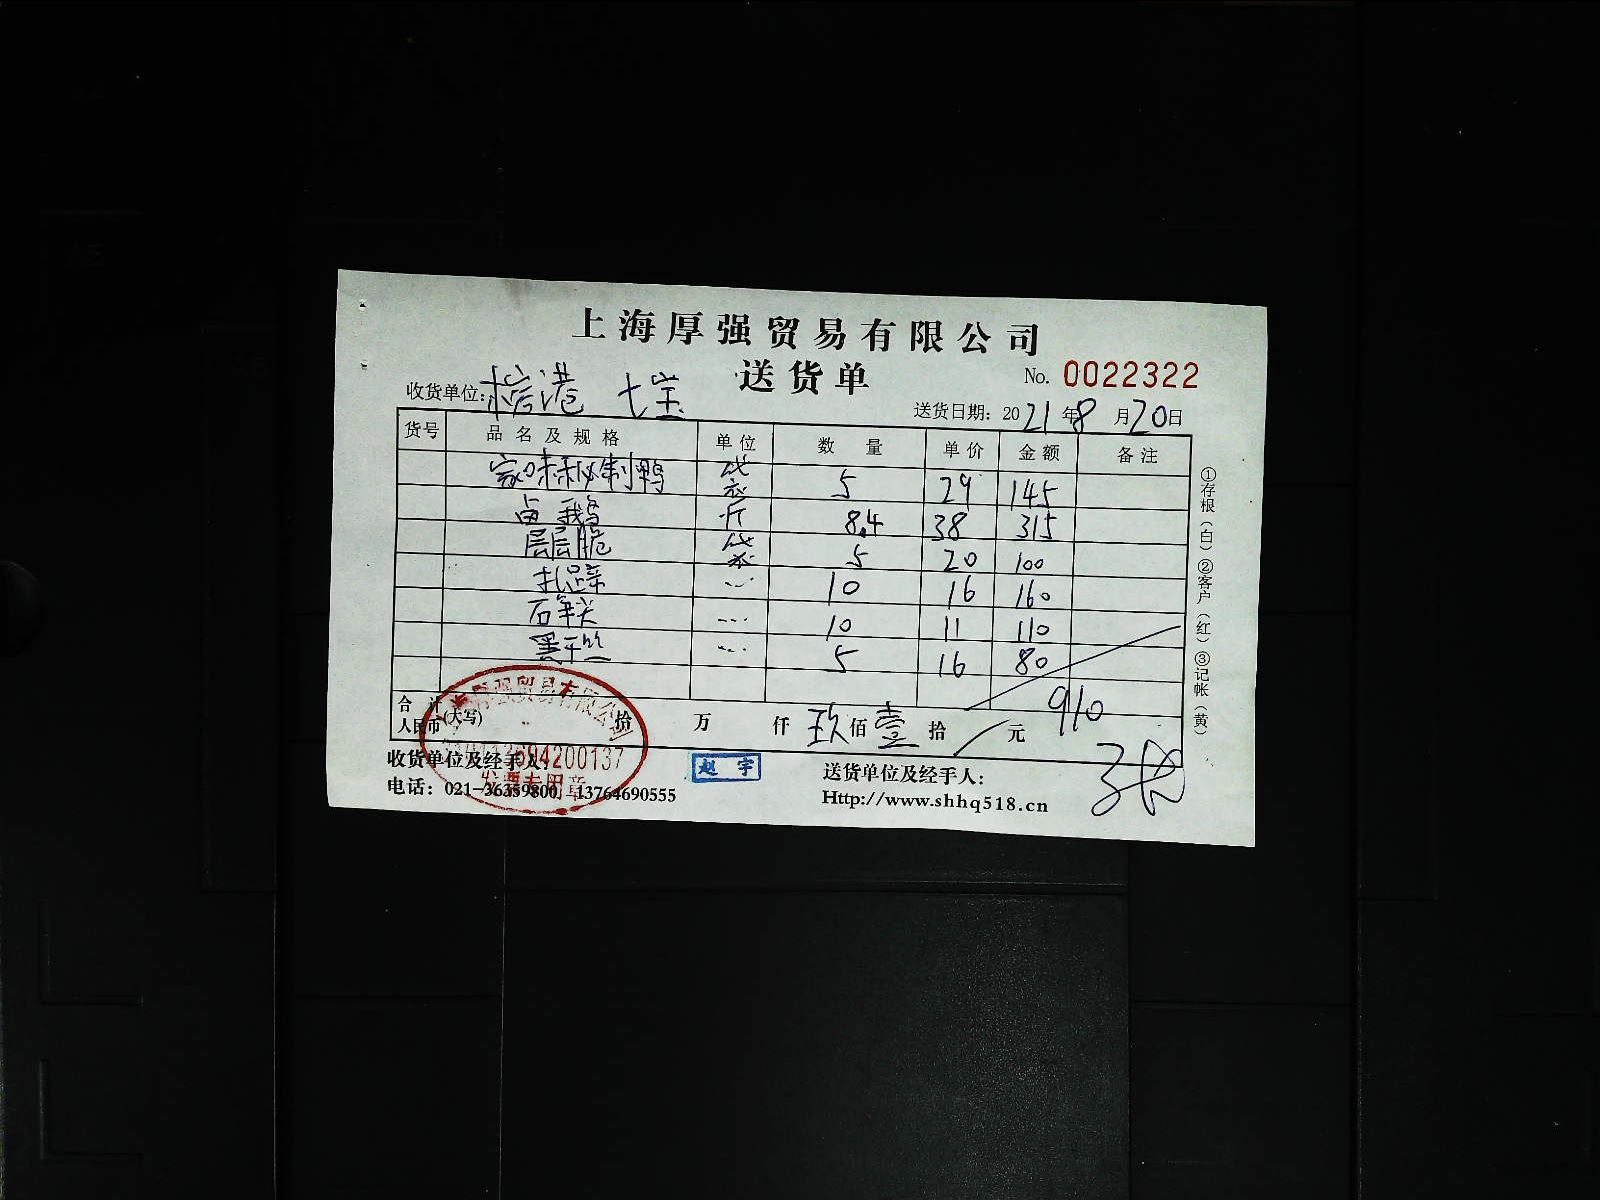 上海厚强贸易有限公司
送货单
No. 0022322
收货单位: 榕港 七宝
送货日期: 2021年8月20日
货号 品名及规格 单位 数量 单价 金额 备注
家味秘制鸭 袋 5 29 145
卤鹅 斤 8.4 38 315
层层脆 袋 5 20 100
扎蹄 10 16 160
10 11 110
黑干丝 5 16 80
合计人民币(大写) 拾 万 仟 玖佰壹拾 元 910
收货单位及经手人:
赵宇
送货单位及经手人:
电话: 021-36359800 13764690555
Http://www.shhq518.cn
①存根(白)②客户(红)③记帐(黄)
上海厚强贸易有限公司
发票专用章